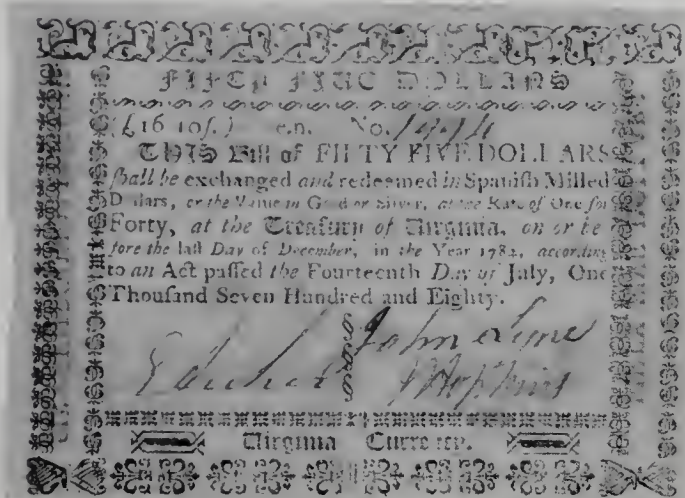 FIFTY FIVE DOLLARS
(£16 10ſ.) No.
THIS Bill of FIFTY FIVE DOLLARS
ſhall be exchanged and redeemed in Spaniſh Milled
Dollars, or the Value in Gold or Silver, at the Rate of One for
Forty, at the Treaſury of Virginia, on or be
fore the laſt Day of December, in the Year 1784, according
to an Act paſſed the Fourteenth Day of July, One
Thouſand Seven Hundred and Eighty.
John Lyne
J Hopkins
Virginia Currency.